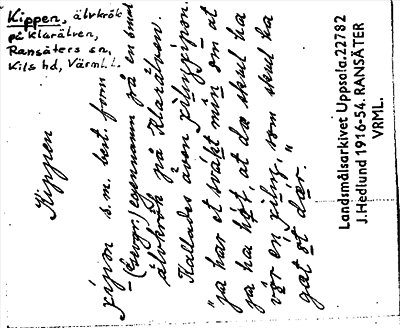 Kippen, älvkrök
på Klarälven,
Ransäters sn,
Kils hd, Värml. l.
Kippen
s.m. best. form
egennamn på en
älvkrök på Klarälven.
Kallades även
"ja har et svákt min om at
ja ha hört, at dæ skul ha
vör en som skul ha
gåt öt dár."
Landsmålsarkivet Uppsala.22782
J. Hedlund 1916-54. RANSÄTER
VRML.